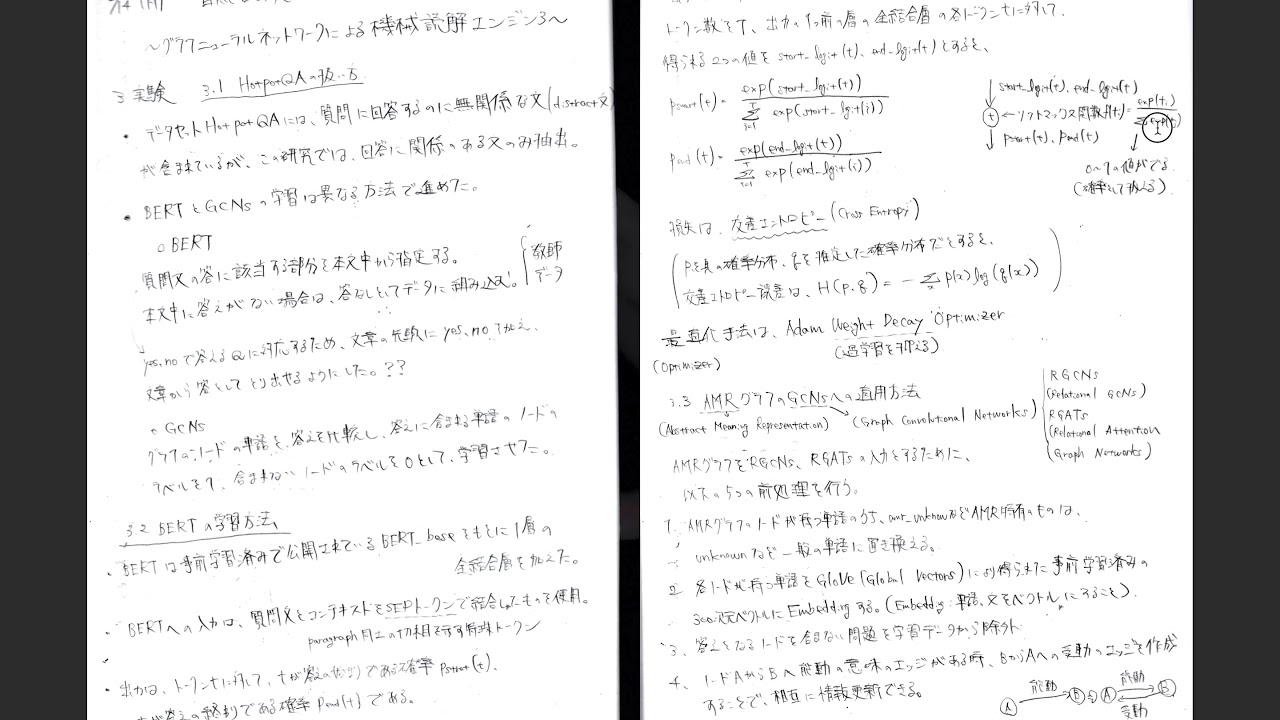 〜グラフニューラルネットワークによる機械読解エンジン3〜
3 実験 3.1 HotpotQAの扱い方
・データセットHotpotQAには、質問に回答するのに無関係な文(distract文)
が含まれているが、この研究では、回答に関係のある文のみ抽出。
・BERTとGCNsの学習は異なる方法で進めた。
○ BERT
質問文の答に該当する部分を本文中から指定する。
本文中に答えがない場合は、答なしとしてデータに組み込む!
教師
データ
yes, noで答えるQに対応するため、文章の先頭にyes, noを加え、
文章から答としてとり出せるようにした。??
○ GCNs
グラフのノードの単語を、答えと比較し、答えに含まれる単語のノードの
ラベルを1、含まれないノードのラベルを0として、学習させた。
3.2 BERTの学習方法
・BERTは事前学習済みで公開されているBERT_baseをもとに1層の
全結合層を加えた。
・BERTへの入力は、質問文とコンテキストをSEPトークンで結合したものを使用。
paragraph同士の切れ目を示す特殊トークン
・出力は、トークンtに対して、tが答えの始まりである確率 Pstart(t)、
tが答えの終わりである確率 Pend(t)である。
トークン数をT、出力の1つ前の層の全結合層の各トークンtに対して、
得られる2つの値を start_logit(t), end_logit(t)とすると、
Pstart(t) = exp(start_logit(t)) / Σ_{i=1}^{T} exp(start_logit(i))
Pend(t) = exp(end_logit(t)) / Σ_{i=1}^{T} exp(end_logit(i))
start_logit(t), end_logit(t)
←ソフトマックス関数 f(ti) = exp(ti)
Pstart(t), Pend(t)
0〜1の値がでる
(確率として扱える)
損失は、交差エントロピー(Cross Entropy)
(Pを真の確率分布、qを推定した確率分布だとすると、
交差エントロピー誤差は、H(p, q) = - Σ_x P(x) log(q(x)))
最適化手法は、Adam Weight Decay Optimizer
(Optimizer) (過学習を抑える)
3.3 AMRグラフのGCNsへの適用方法
(Abstract Meaning Representation) (Graph Convolutional Networks)
RGCNs
(Relational GCNs)
RGATs
(Relational Attention
Graph Networks)
AMRグラフをRGCNs、RGATsの入力とするために、
以下の5つの前処理を行う。
1. AMRグラフのノードが持つ単語のうち、amr_unknownなどAMR特有のものは、
unknownなど一般の単語に置き換える。
2 各ノードが持つ単語をGloVe(Global Vectors)により得られた事前学習済みの
300次元ベクトルにEmbeddingする。(Embedding: 単語、文をベクトルにすること)
3、答えとなるノードを含まない問題を学習データから除外
4、ノードAからBへ能動の意味のエッジがある時、BからAへの受動のエッジを作成
することで、相互に情報更新できる。
A 能動 B ⇒ A 能動 B
受動